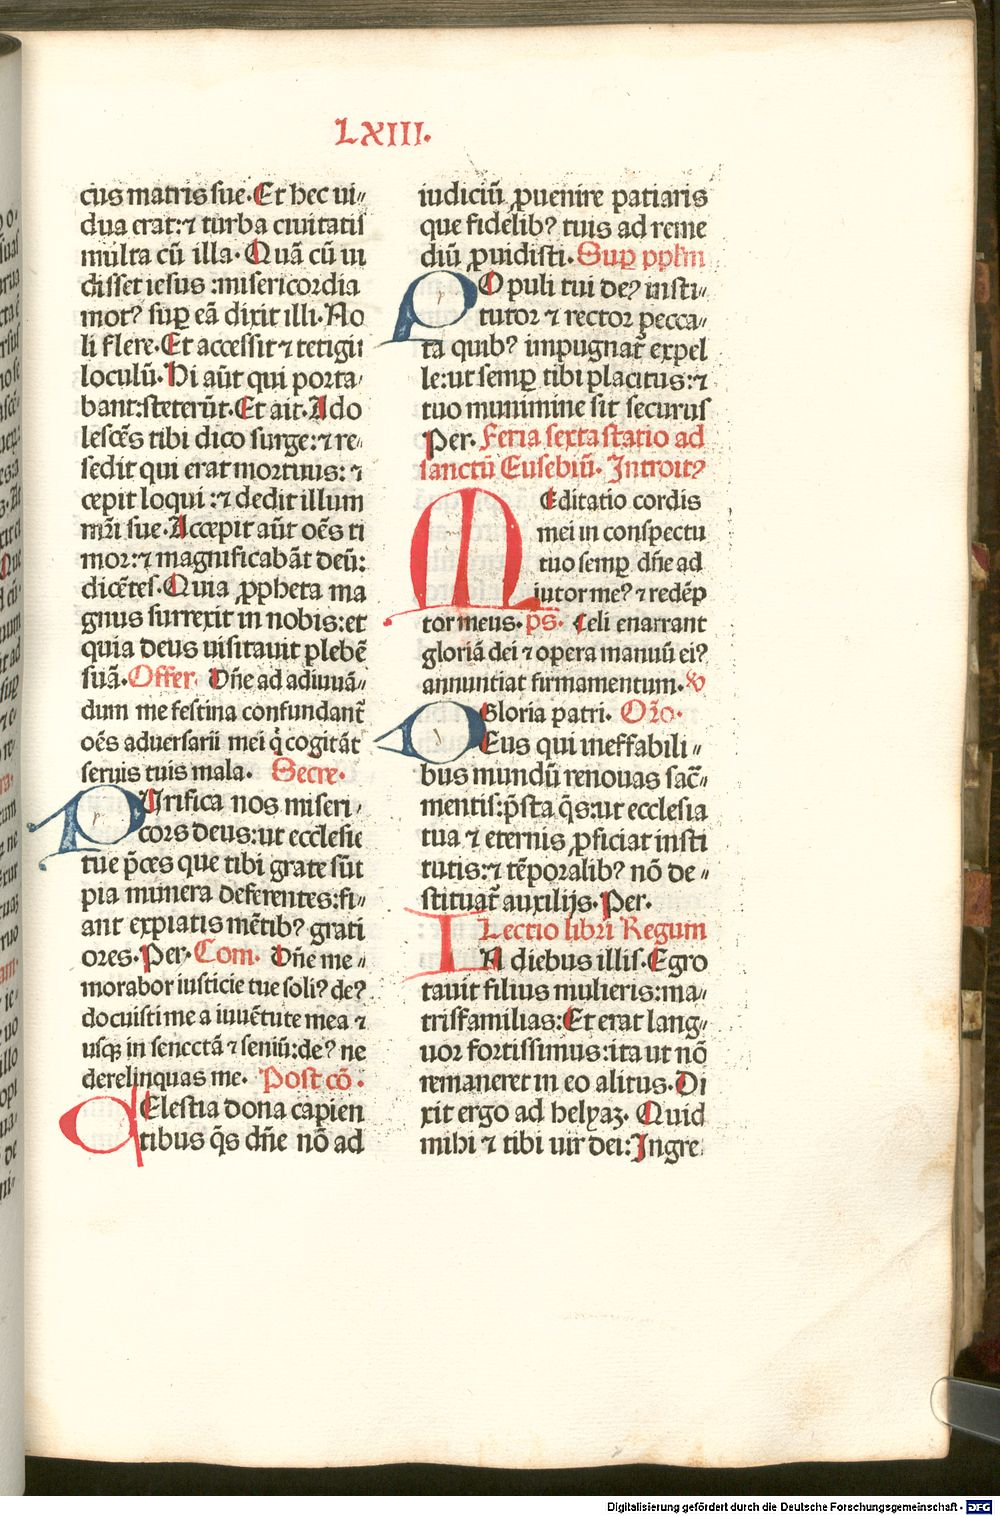 LXIII.
cus matris sue. Et hec ui〃
dua erat: ⁊ turba ciuitatis
multa cū illa. Quā cū ui
disset iesus : misericordia
mot⁹ suꝑ eā dixit illi. No
li flere. Et accessit ⁊ tetigit
loculū. Hi aūt qui porta〃
bant: steterūt. Et ait. Ado
lescēs tibi dico surge: ⁊ re〃
sedit qui erat mortuus: ⁊
cepit loqui : ⁊ dedit illum
mr̄i sue. Accepit aūt oēs ti
mor: ⁊ magnificabāt deū:
dicētes. Quia ꝓpheta ma
gnus surrexit in nobis: et
quia deus uisitauit plebē
suā. Offer. Dn̄e ad adiuuā〃
dum me festina confundant᷑
oēs aduersarii mei q̇ cogitāt
seruis tuis mala. Secre.
PUrifica nos miseri〃
cors deus: ut ecclesie
tue p̄ces que tibi grate sūt
pia munera deferentes: fi〃
ant expiatis mētib⁹ grati
ores. Per. Com. Dn̄e me〃
morabor iusticie tue soli⁹ de⁹
docuisti me a iuuētute mea ⁊
usqꝫ in senectā ⁊ seniū: de⁹ ne
derelinquas me. Post cō.
CElestia dona capien
tibus q̄s dn̄e nō ad
iudiciū ꝓuenire patiaris
que fidelib⁹ tuis ad reme
diū ꝓuidisti. Suꝑ pplm̄
POpuli tui de⁹ insti〃
tutor ⁊ rector pecca〃
ta quib⁹ impugnat᷑ expel
le: ut semꝑ tibi placitus: ⁊
tuo munimine sit securus
Per. Feria sexta statio ad
sanctū Eusebiū. Introit⁹
MEditatio cordis
mei in conspectu
tuo semꝑ dn̄e ad
iutor me⁹ ⁊ redēp
tor meus. ps. Celi enarrant
gloriā dei ⁊ opera manuū ei⁹
annuntiat firmamentum. ℣
Gloria patri. Or̄o.
DEus qui ineffabili〃
bus mundū renouas sac̄〃
mentis: p̄sta q̄s: ut ecclesia
tua ⁊ eternis ꝓficiat insti
tutis: ⁊ tēporalib⁹ nō de〃
stituat᷑ auxilijs. Per.
Lectio libri Regum
IN diebus illis. Egro
tauit filius mulieris: ma〃
trisfamilias: Et erat lang〃
uor fortissimus: ita ut nō
remaneret in eo alitus. Di
xit ergo ad helyaz. Quid
mihi ⁊ tibi uir dei: Ingre
Digitalisierung gefördert durch die Deutsche Forschungsgemeinschaft - DFG